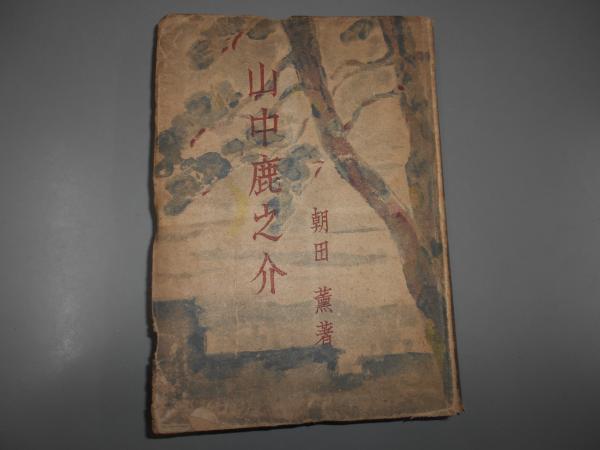 山中鹿之介
朝田 薫著